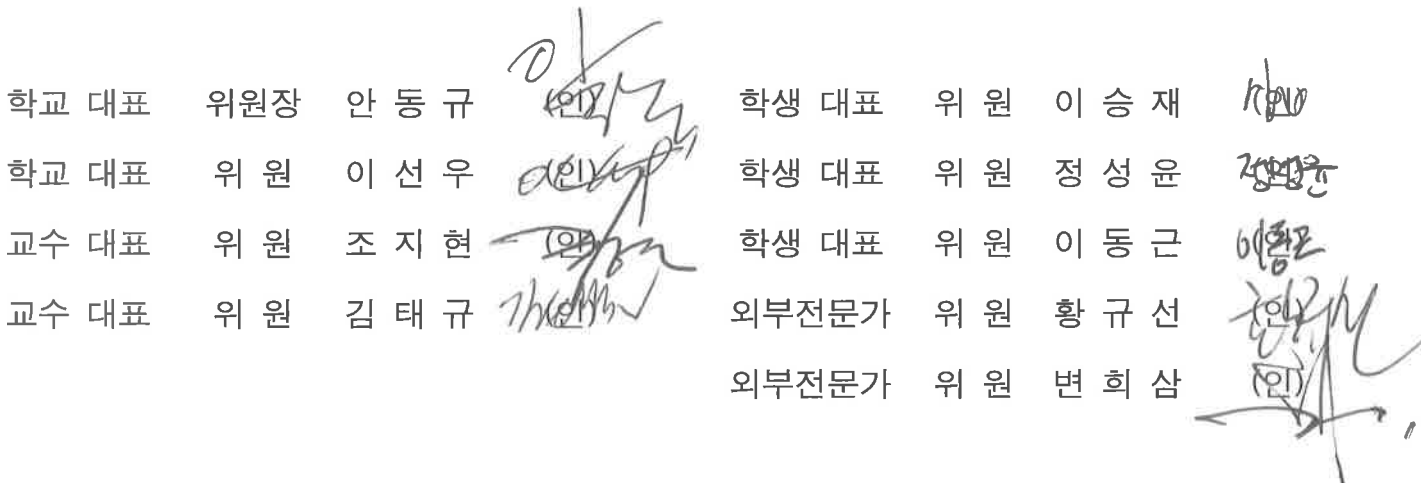 학교 대표 위원장 안 동 규 (인)
학교 대표 위 원 이 선 우 (인)
교수 대표 위 원 조 지 현 (인)
교수 대표 위 원 김 태 규 (인)
학생 대표 위 원 이 승 재
학생 대표 위 원 정 성 윤 정성윤
학생 대표 위 원 이 동 근 이동근
외부전문가 위 원 황 규 선 (인)
외부전문가 위 원 변 희 삼 (인)